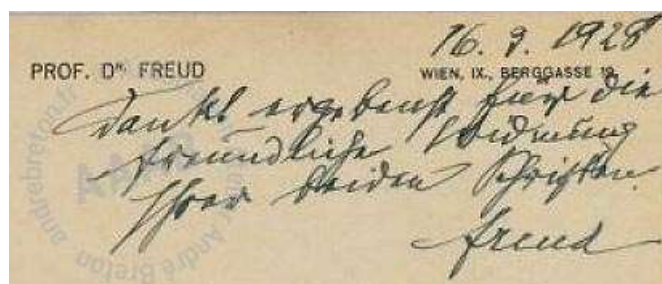 16. 9. 1928
PROF. Dʳ· FREUD
WIEN, IX., BERGGASSE 19.
dankt ergebenst für die
freundliche Widmung
Ihrer beiden Schriften.
Freud
andrebreton.fr
André Breton